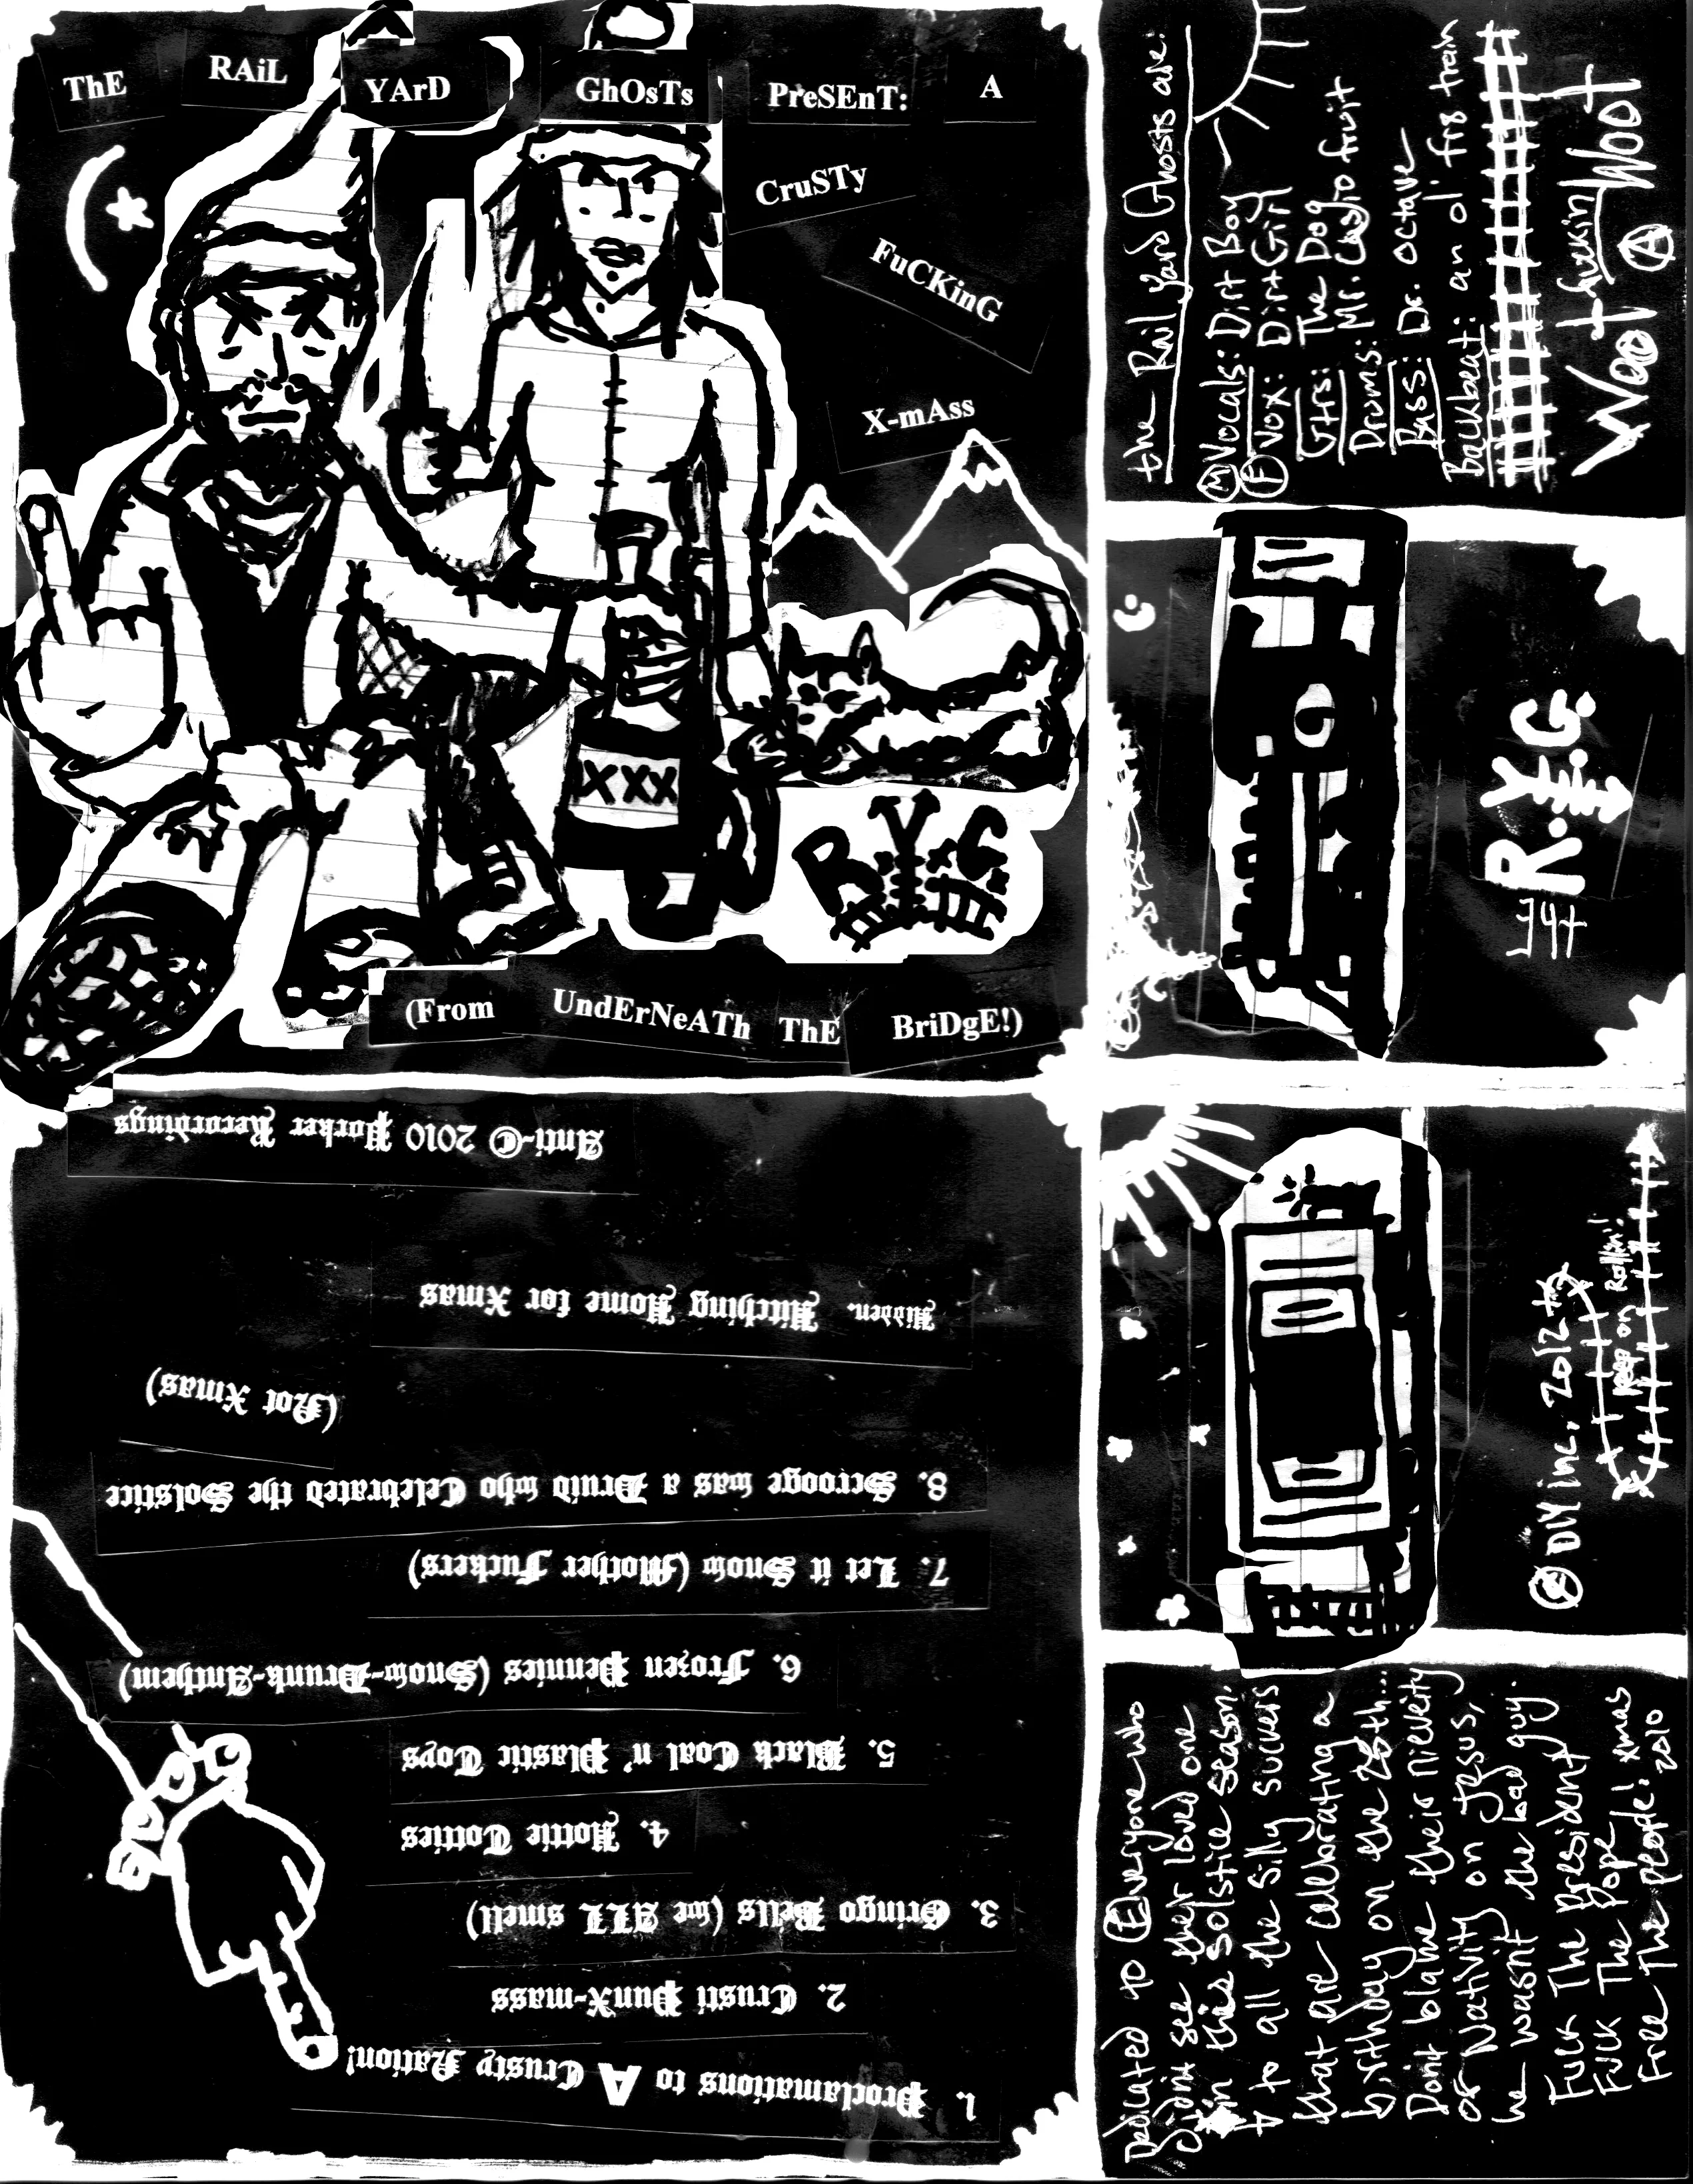 ThE RAiL YArD GhOsTs PreSEnT: A
CruSTy
FuCKinG
X-mAss
XXX
R.Y.G.
(From UndErNeATh ThE BriDgE!)
the Rail Yard Ghosts are:
(M) Vocals: Dirt Boy
(F) Vox: Dirt Girl
Gtrs: The Dog
Drums: Mr. Casio fruit
Bass: Dr. octave
Backbeat: an ol' fr8 train
Woot fuckin Woot
R.Y.G.
Anti-© 2010 Porker Recordings
Hidden. Hitching Home for Xmas
(Not Xmas)
8. Scrooge was a Druid who Celebrated the Solstice
7. Let it Snow (Mother Fuckers)
6. Frozen Pennies (Snow-Drunk-Anthem)
5. Black Coal n' Plastic Toys
4. Hottie Totties
3. Gringo Bells (we All smell)
2. Crusti PunX-mass
1. Proclamations to A Crusty Nation!
DIY inc. 2012
keep on Rollin'!
Dedicated to Everyone who
didnt see their loved one
in this Solstice season.
& to all the silly suckers
that are celebrating a
birthday on the 25th...
Dont blame their nievity
or Nativity on Jesus,
he wasnt the bad guy.
Fuck The President
Fuck The Pope!
Free The people! xmas
2010